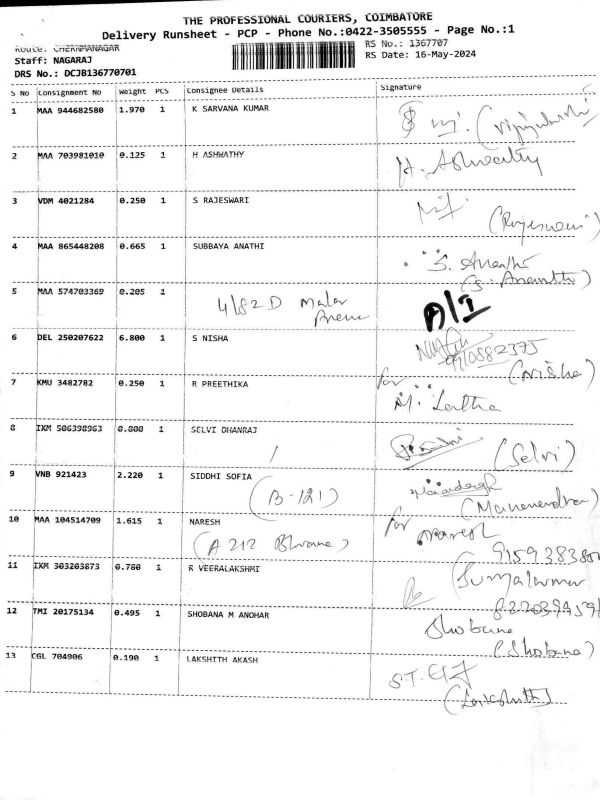 THE PROFESSIONAL COURIERS, COIMBATORE
Delivery Runsheet - PCP - Phone No.:0422-3505555 - Page No.:1
Route: CHERNMANAGAR
RS No.: 1367707
Staff: NAGARAJ
RS Date: 16-May-2024
DRS No.: DCJB136770701
S No Consignment No Weight PCS Consignee Details Signature
1 MAA 944682580 1.970 1 K SARVANA KUMAR
2 MAA 703981010 0.125 1 H ASHWATHY H. Ashwathy
3 VDM 4021284 0.250 1 S RAJESWARI
(Rajeswari)
4 MAA 865448208 0.665 1 SUBBAYA ANATHI S. Ananthi
(S. Ananthi)
5 MAA 574703369 0.205 1 4/82 D Malar
6 DEL 250207622 6.800 1 S NISHA
(Nisha)
7 KMU 3482782 0.250 1 R PREETHIKA for
M. Latha
8 IXM 506398963 0.800 1 SELVI DHANRAJ
(Selvi)
9 VNB 921423 2.220 1 SIDDHI SOFIA
(B-121)
10 MAA 104514709 1.615 1 NARESH for Naresh
(A 212
11 IXM 303203873 0.780 1 R VEERALAKSHMI
12 TMI 20175134 0.495 1 SHOBANA M ANOHAR
Shobana
(Shobana)
13 CGL 704906 0.190 1 LAKSHITH AKASH
(Lakshith)